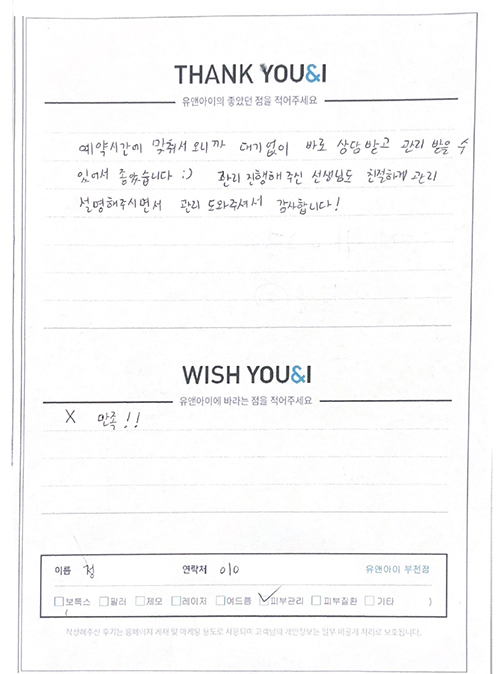 THANK YOU&I
유앤아이의 좋았던 점을 적어주세요
예약시간에 맞춰서 오니까 대기없이 바로 상담받고 관리 받을 수
있어서 좋았습니다 :) 관리 진행해주신 선생님도 친절하게 관리
설명해주시면서 관리 도와주셔서 감사합니다!
WISH YOU&I
유앤아이에 바라는 점을 적어주세요
X 만족!!
이름 정 연락처 010 유앤아이 부천점
보톡스 필러 제모 레이저 여드름 피부관리 피부질환 기타 ( )
작성해주신 후기는 홈페이지 게재 및 마케팅 용도로 사용되며 고객님의 개인정보는 일부 비공개 처리로 보호됩니다.